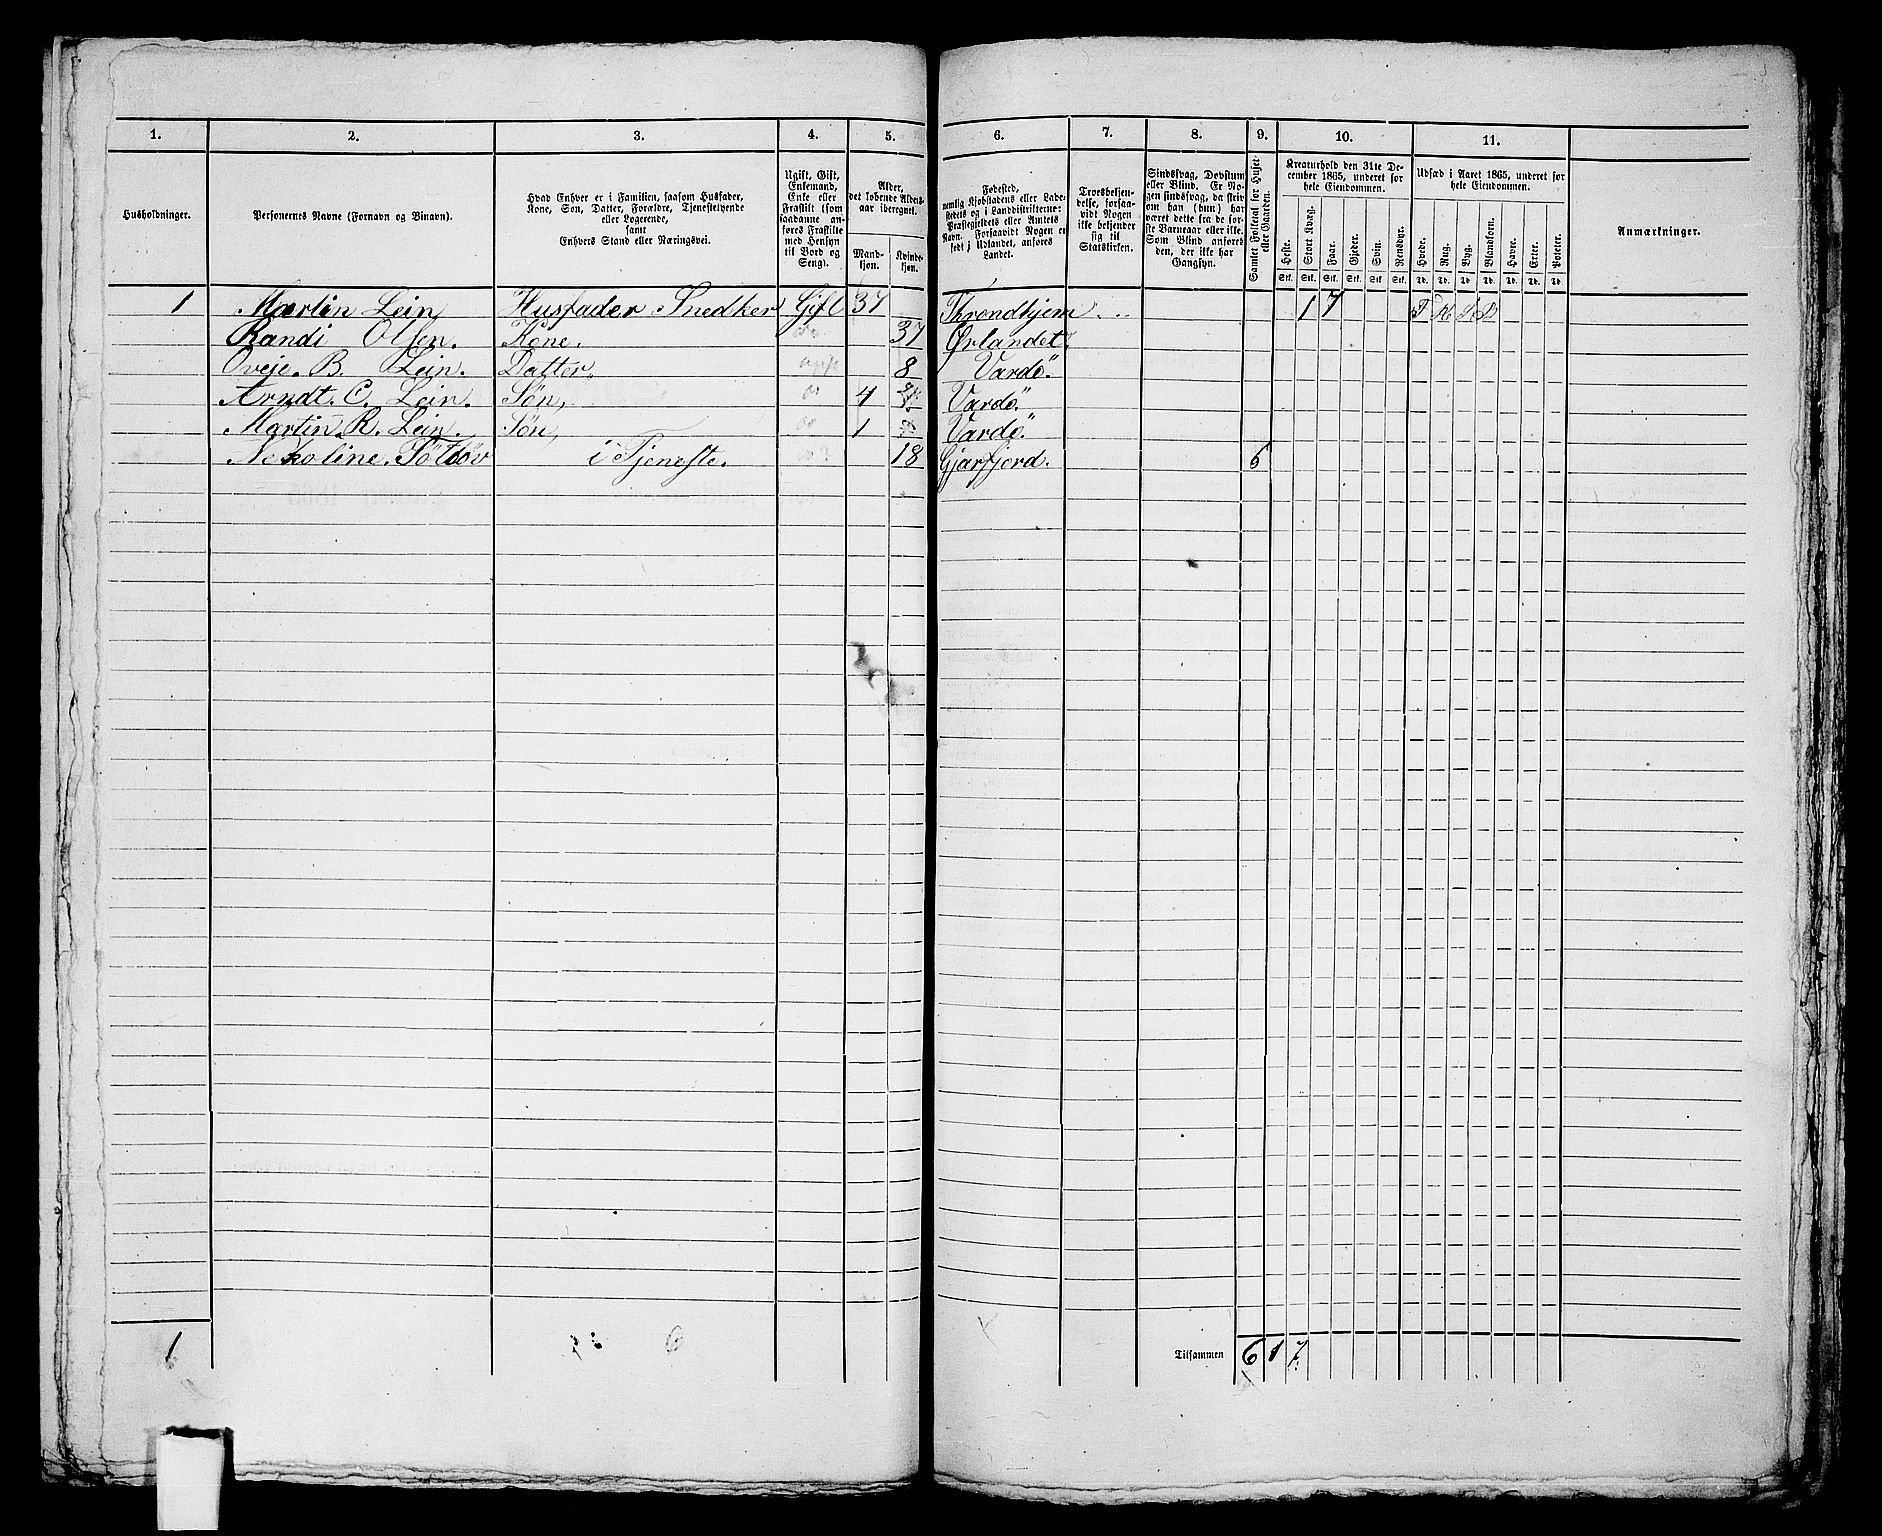 1. 2. 3. 4. 5. 6. 7. 8. 9. 10. 11.
Husholdninger.
Personernes Navne (Fornavn og Binavn).
Hvad Enhver er i Familien, saasom Husfader,
Kone, Søn, Datter, Forældre, Tjenestetyende
eller Logerende,
samt
Enhvers Stand eller Næringsvei.
Ugift, Gift,
Enkemand,
Enke eller
Fraskilt (som
saadanne an-
føres Fraskilte
med Hensyn
til Bord og
Seng).
Alder,
det løbende Alders-
aar iberegnet.
Mand-
kjøn.
Kvinde-
kjøn.
Fødested,
nemlig Kjøbstadens eller Lade-
stedets og i Landdistrikterne:
Præstegjeldets eller Amtets
Navn. Forsaavidt Nogen er
født i Udlandet, anføres
Landet.
Troesbekjen-
delse, forsaa-
vidt Nogen
ikke bekjender
sig til
Statskirken.
Sindssvag, Døvstum
eller Blind. Er No-
gen sindssvag, da skriv
om han (hun) har
været dette fra de før-
ste Barneaar eller ikke.
Som Blind anføres
den, der ikke har
Gangsyn.
Samlet Folketal for Huset
eller Gaarden.
Kreaturhold den 31te De-
cember 1865, underet for
hele Eiendommen.
Heste. Stort Kvæg. Faar. Gjeder. Svin. Rensdyr.
Stk. Stk. Stk. Stk. Stk. Stk.
Udsæd i Aaret 1865, underet for
hele Eiendommen.
Hvede. Rug. Byg. Blandkorn. Havre. Erter. Poteter.
Td. Td. Td. Td. Td. Td. Td.
Anmærkninger.
1 Martin Lein, Husfader Snedker Gift 37 Throndhjem 1 7
Randi Olsen. Kone. 37 Ørlandet
Oveje. B. Lein. Datter. 8 Vardö.
Arndt. C. Lein. Søn, 4 Vardö.
Martin R. Lein. Søn, 1 Vardö.
i Tjeneste. 18 6
1 6 Tilsammen 6 1 7